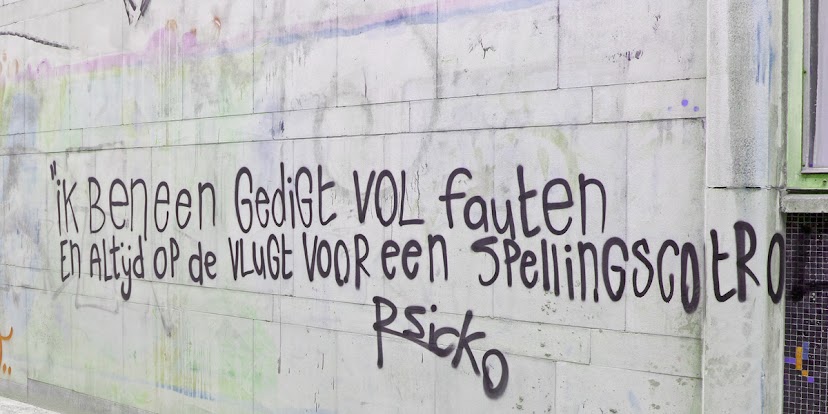 "iK BEN EEN GediGt VOL fauten
EN ALtijd OP de VLUGt VOOR EEN SPELLINGSCOtRO
RSicKO